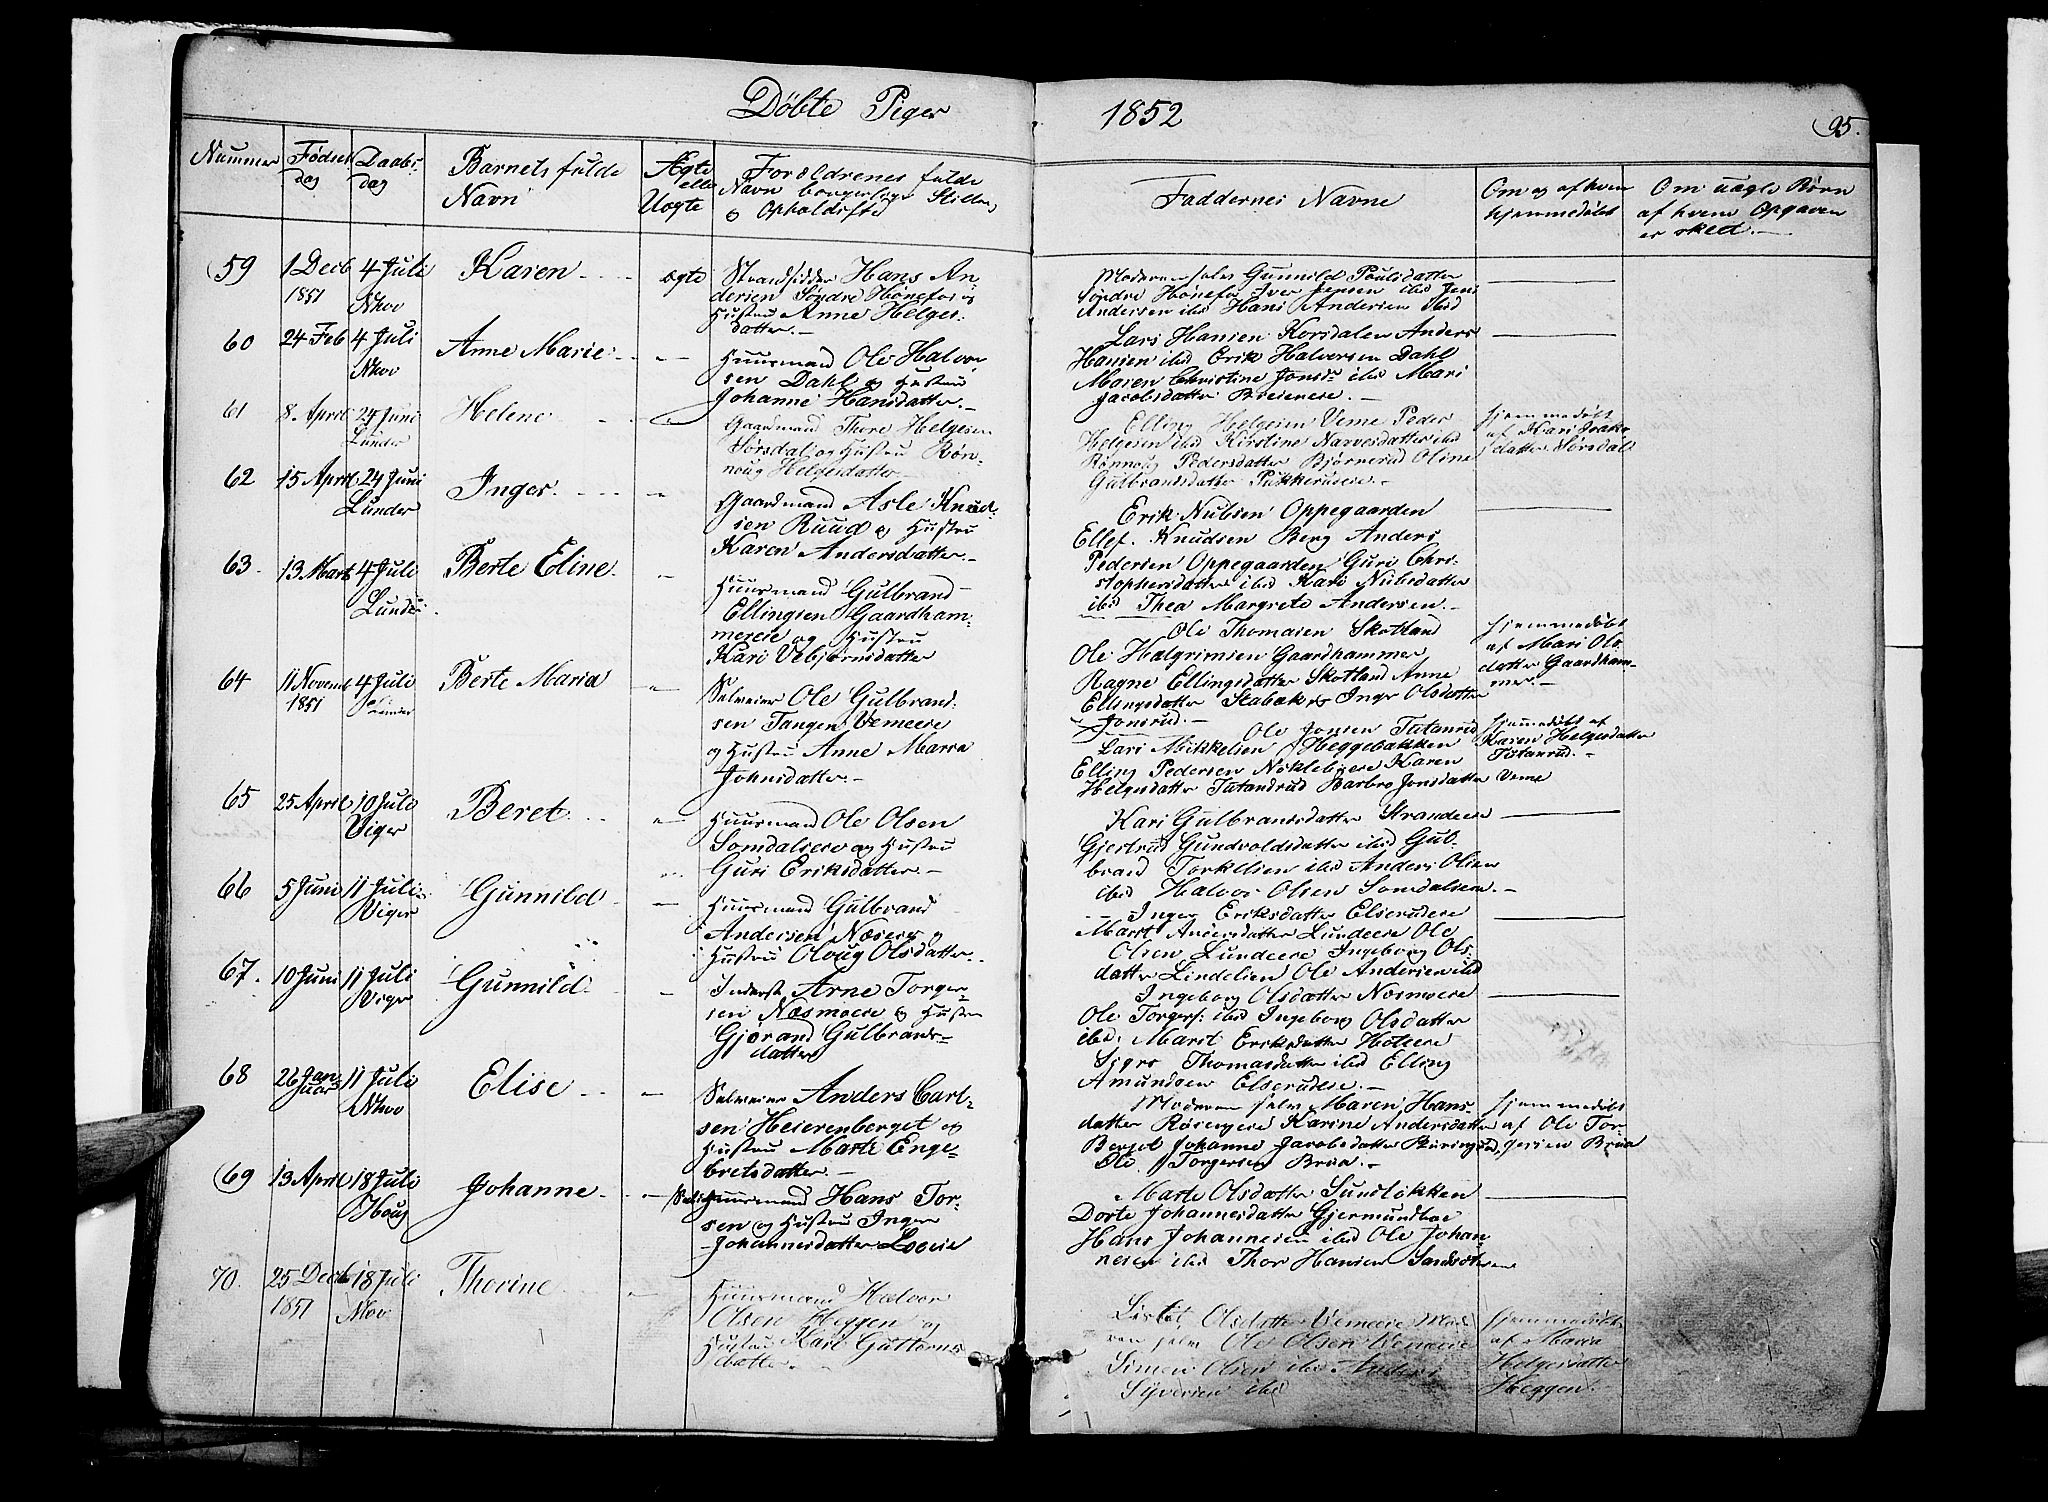 Döbte Piger 1852
95.
Nummer
Fødsels dag
Daabs- dag
Barnets fulde Navn
Ægte eller Uægte
Forældrenes fulde Navn borgerlige Stilling og Opholdssted
Faddernes Navne
Om og af hvem hjemmedøbt
Om uægte Børn af hvem Opgaven er skeet.
59
1 Decb 1851
4 Juli Nkov
Karen
ægte
Strandsidder Hans An-
dersen Søndre Hønefos og
Hustru Anne Helges-
datter.
Moderen selv Gunnild Poulsdatter
Søndre Hønefos Iver Jensen ibid Jens
Andersen ibid Hans Andersen ibid
60
24 Feb
4 Juli Nkov
Anne Marie
Huusmand Ole Halvor
sen Dahl og Hustru
Johanne Hansdatter.
Lars Hansen Korsdalen Anders
Hansen ibid Erik Halversen Dahl
Maren Christine Jonsdr ibid Mari
Jacobsdatter Breieneie.
61
8. April
24 Juni Lunder
Helene
Gaardmand Thore Helgesen
Sørsdal og Hustru Røn-
noug Helgesdatter
Elling Helgesen Veme Peder
Helgesen ibid Kirstine Narvesdatter ibid
Rønnoug Pedersdatter Bjørnerud Oline
Gulbrandsdatter Pukkerudeie.
hjemmedøbt
af Kari Isaks
datter Sørsdal
62
15 April
24 Juni Lunder
Inger.
Gaardmand Asle Knud-
sen Ruud og Hustru
Karen Andersdatter.
Erik Nubsen Oppegaarden
Ellef. Knudsen Berg Anders
Pedersen Oppegaarden Guri Chri-
stophersdatter ibid Kari Nubsdatter
ibid Thea Margrete Andersen.
63.
13 Marts
4 Juli Lunder
Berte Eline.
Huusmand Gulbrand
Ellingsen Gaardham-
mereie og Hustru
Kari Vebjørnsdatter
Ole Thomasen Skotland
Ole Halgrimsen Gaardhammer
Ragne Ellingsdatter Skotland Anne
Ellingsdatter Stabæk og Inger Olsdatter
Jonsrud.
hjemmedøbt
af Mari Ols-
datter Gaardham-
mer.
64
11 Novemb 1851
4 Juli Lunder
Berte Maria
Selveier Ole Gulbrand-
sen Tangen Vemeeie
og Hustru Anne Maria
Johnsdatter.
Ole Jonsen Tutanrud
Lars Mikkelsen Heggebakken
Elling Pedersen Nøklebyeie Karen
Helgesdatter Tutandrud Barbro Jonsdatter Veme
hjemmedøbt af
Karen Helgesdatter
Tutanrud.
65
25 April
10 Juli Viger
Beret.
Huusmand Ole Olsen
Somdalseie og Hustru
Guri Eriksdatter.
Kari Gulbrandsdatter Strandeie
Gjertrud Gundvoldsdatter ibid Gul-
brand Torkelsen ibid Anders Olsen
ibid Halvor Olsen Somdalseie.
66
5 Juni
11 Juli Viger
Gunnild
Huusmand Gulbrand
Andersen Næseie og
Hustru Olaug Olsdatter.
Inger Eriksdatter Elserudeie
Marit Andersdatter Lundeeie Ole
Olsen Lundeeie Ingeborg Ols-
datter Lindelien Ole Andersen ibid
67.
10 Juni
11 Juli Viger
Gunnild
Inderst Arne Torger-
sen Næsmoeie og Hustru
Gjørand Gulbrands-
datter
Ingeborg Olsdatter Næsmoeie
Ole Torgers: ibid Ingeborg Olsdatter
ibid. Marit Eriksdatter Holeeie
Sigri Thomasdatter ibid Elling
Amundsen Elserudeie.
68
26 Januar
11 Juli Nkov
Elise
Selveier Anders Carl-
sen Heierenberget og
Hustru Marte Enge-
bretsdatter.
Moderen selv Maren Hans-
datter Røsengeie Karine Andersdatter
Berget Johanne Jacobsdatter
Ole Torgersen Brua.
hjemmedøbt
af Ole Tor-
gersen Brua
69
13 April
18 Juli Houg
Johanne
Huusmand Hans Tor-
sen og Hustru Inger
Johannesdatter Loeeie
Marte Olsdatter Sundløkken
Dorte Johannesdatter Gjermundboe
Hans Johannesen ibid Ole Johan-
nesen ibid Thor Hansen
70.
25 Decb 1851
18 Juli Nkov
Thorine
Huusmand Halvor
Olsen Heggen og
Hustru Kari Guttorms
datter.
Lisbet Olsdatter Vemeeie Mod
ren selv Ole Olsen Vemeeie
Simen Olsen ibid Anders
Syversen ibid
hjemmedøbt
af Maria
Helgesdatter
Heggen.